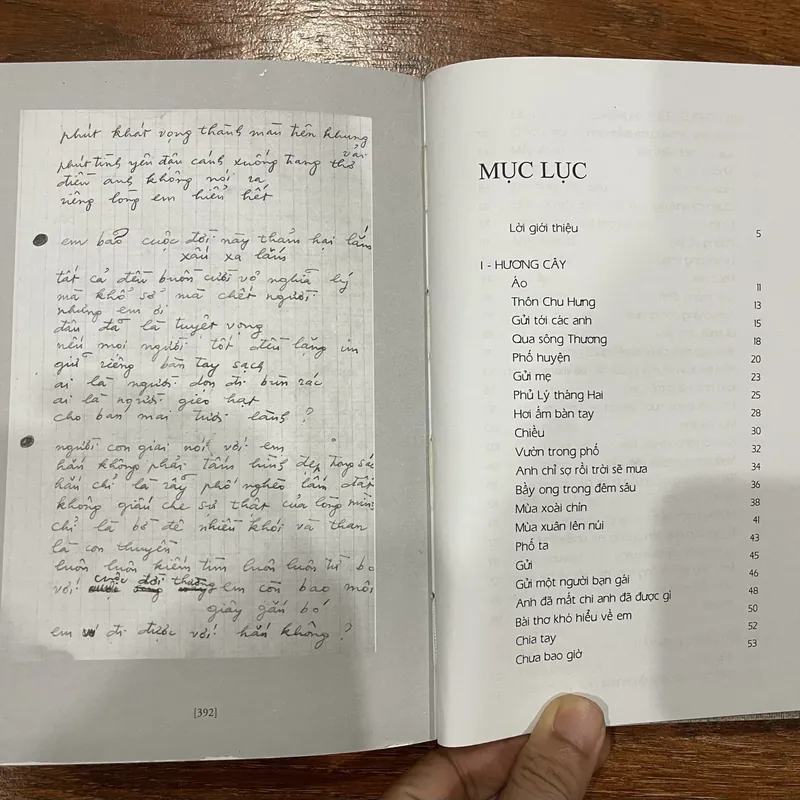 phút khát vọng thành màu trên khung vải
phút tình yêu đậu cánh xuống trang thơ
điều anh không nói ra
riêng lòng em hiểu hết
em bảo cuộc đời này thảm hại lắm
xấu xa lắm
tất cả đều buồn cười vô nghĩa lý
mà khổ sở mà chết người
nhưng em ơi
đâu đã là tuyệt vọng
nếu mọi người tốt đều lặng im
giữ riêng bàn tay sạch
ai là người dọn đi bùn rác
ai là người gieo hạt
cho ban mai tươi lành?
người con giai nói với em
hắn không phải tấm hình đẹp trong sách
hắn chỉ là dãy phố nghèo lấm đất
không giấu che sự thật của lòng mình
chỉ là bờ đê nhiều khói và than
là con thuyền
luôn luôn kiếm tìm luôn luôn từ bỏ
với cuộc đời thường em còn bao mối
giây gắn bó
em đi được với hắn không?
[392]
MỤC LỤC
Lời giới thiệu 5
I - HƯƠNG CÂY
Áo 11
Thôn Chu Hưng 13
Gửi tới các anh 15
Qua sông Thương 18
Phố huyện 20
Gửi mẹ 23
Phủ Lý tháng Hai 25
Hơi ấm bàn tay 28
Chiều 30
Vườn trong phố 32
Anh chỉ sợ rồi trời sẽ mưa 34
Bầy ong trong đêm sâu 36
Mùa xoài chín 38
Mùa xuân lên núi 41
Phố ta 43
Gửi 45
Gửi một người bạn gái 46
Anh đã mất chi anh đã được gì 48
Bài thơ khó hiểu về em 50
Chia tay 52
Chưa bao giờ 53